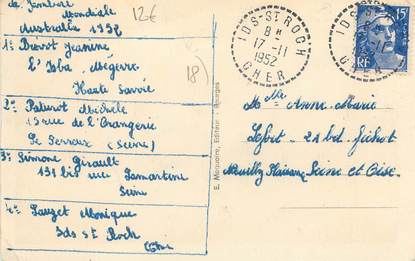 Mondiale
Australia 1952
1: Pierrot Jeannine
L'Isba. Mégève
Haute Savoie
2: Paturot Michèle
15 rue de l'Orangerie
Le Perreux (Seine)
3: Simone Girault
131 bis rue Lamartine
Seine
4: Lauzet Monique
Ids St Roch
Cher
12€
18)
E. Marquaire, Editeur - Bourges
IDS-ST-ROCH
8H
17-11
1952
CHER
IDS-ST
CHER
15F
RF
Melle Anne-Marie
Lefort. 21 bd Fichot
Neuilly Plaisance Seine et Oise